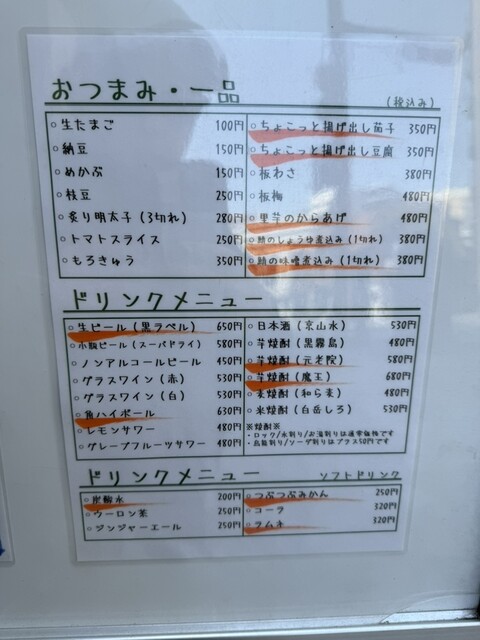 おつまみ・一品
(税込み)
○生たまご 100円
○納豆 150円
○めかぶ 150円
○枝豆 250円
○炙り明太子(3切れ) 280円
○トマトスライス 250円
○もろきゅう 350円
○ちょこっと揚げ出し茄子 350円
○ちょこっと揚げ出し豆腐 350円
○板わさ 380円
○板梅 480円
○里芋のからあげ 480円
○鯖のしょうゆ煮込み(1切れ) 380円
○鯖の味噌煮込み(1切れ) 380円
ドリンクメニュー
○生ビール(黒ラベル) 650円
○小瓶ビール(スーパドライ) 580円
○ノンアルコールビール 450円
○グラスワイン(赤) 530円
○グラスワイン(白) 530円
○角ハイボール 630円
○レモンサワー 480円
○グレープフルーツサワー 480円
○日本酒(京山水) 530円
○芋焼酎(黒霧島) 480円
○芋焼酎(元老院) 580円
○芋焼酎(魔王) 680円
○麦焼酎(和ら麦) 480円
○米焼酎(白岳しろ) 530円
※焼酎※
・ロック/水割り/お湯割りは通常価格です
・烏龍割り/ソーダ割りはプラス50円です
ドリンクメニュー ソフトドリンク
○炭酸水 200円
○ウーロン茶 250円
○ジンジャーエール 250円
○つぶつぶみかん 250円
○コーラ 320円
○ラムネ 320円